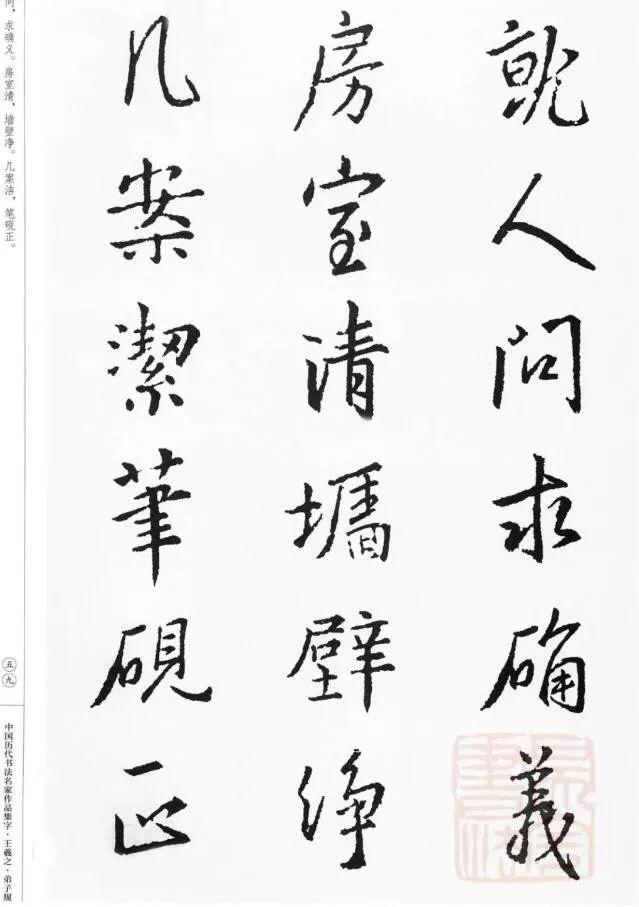 就人问求确義
房室清墙壁净
几案潔筆硯正
问，求确义。房室清，墙壁净。几案洁，笔砚正。
五九
中国历代书法名家作品集字·王羲之·弟子规